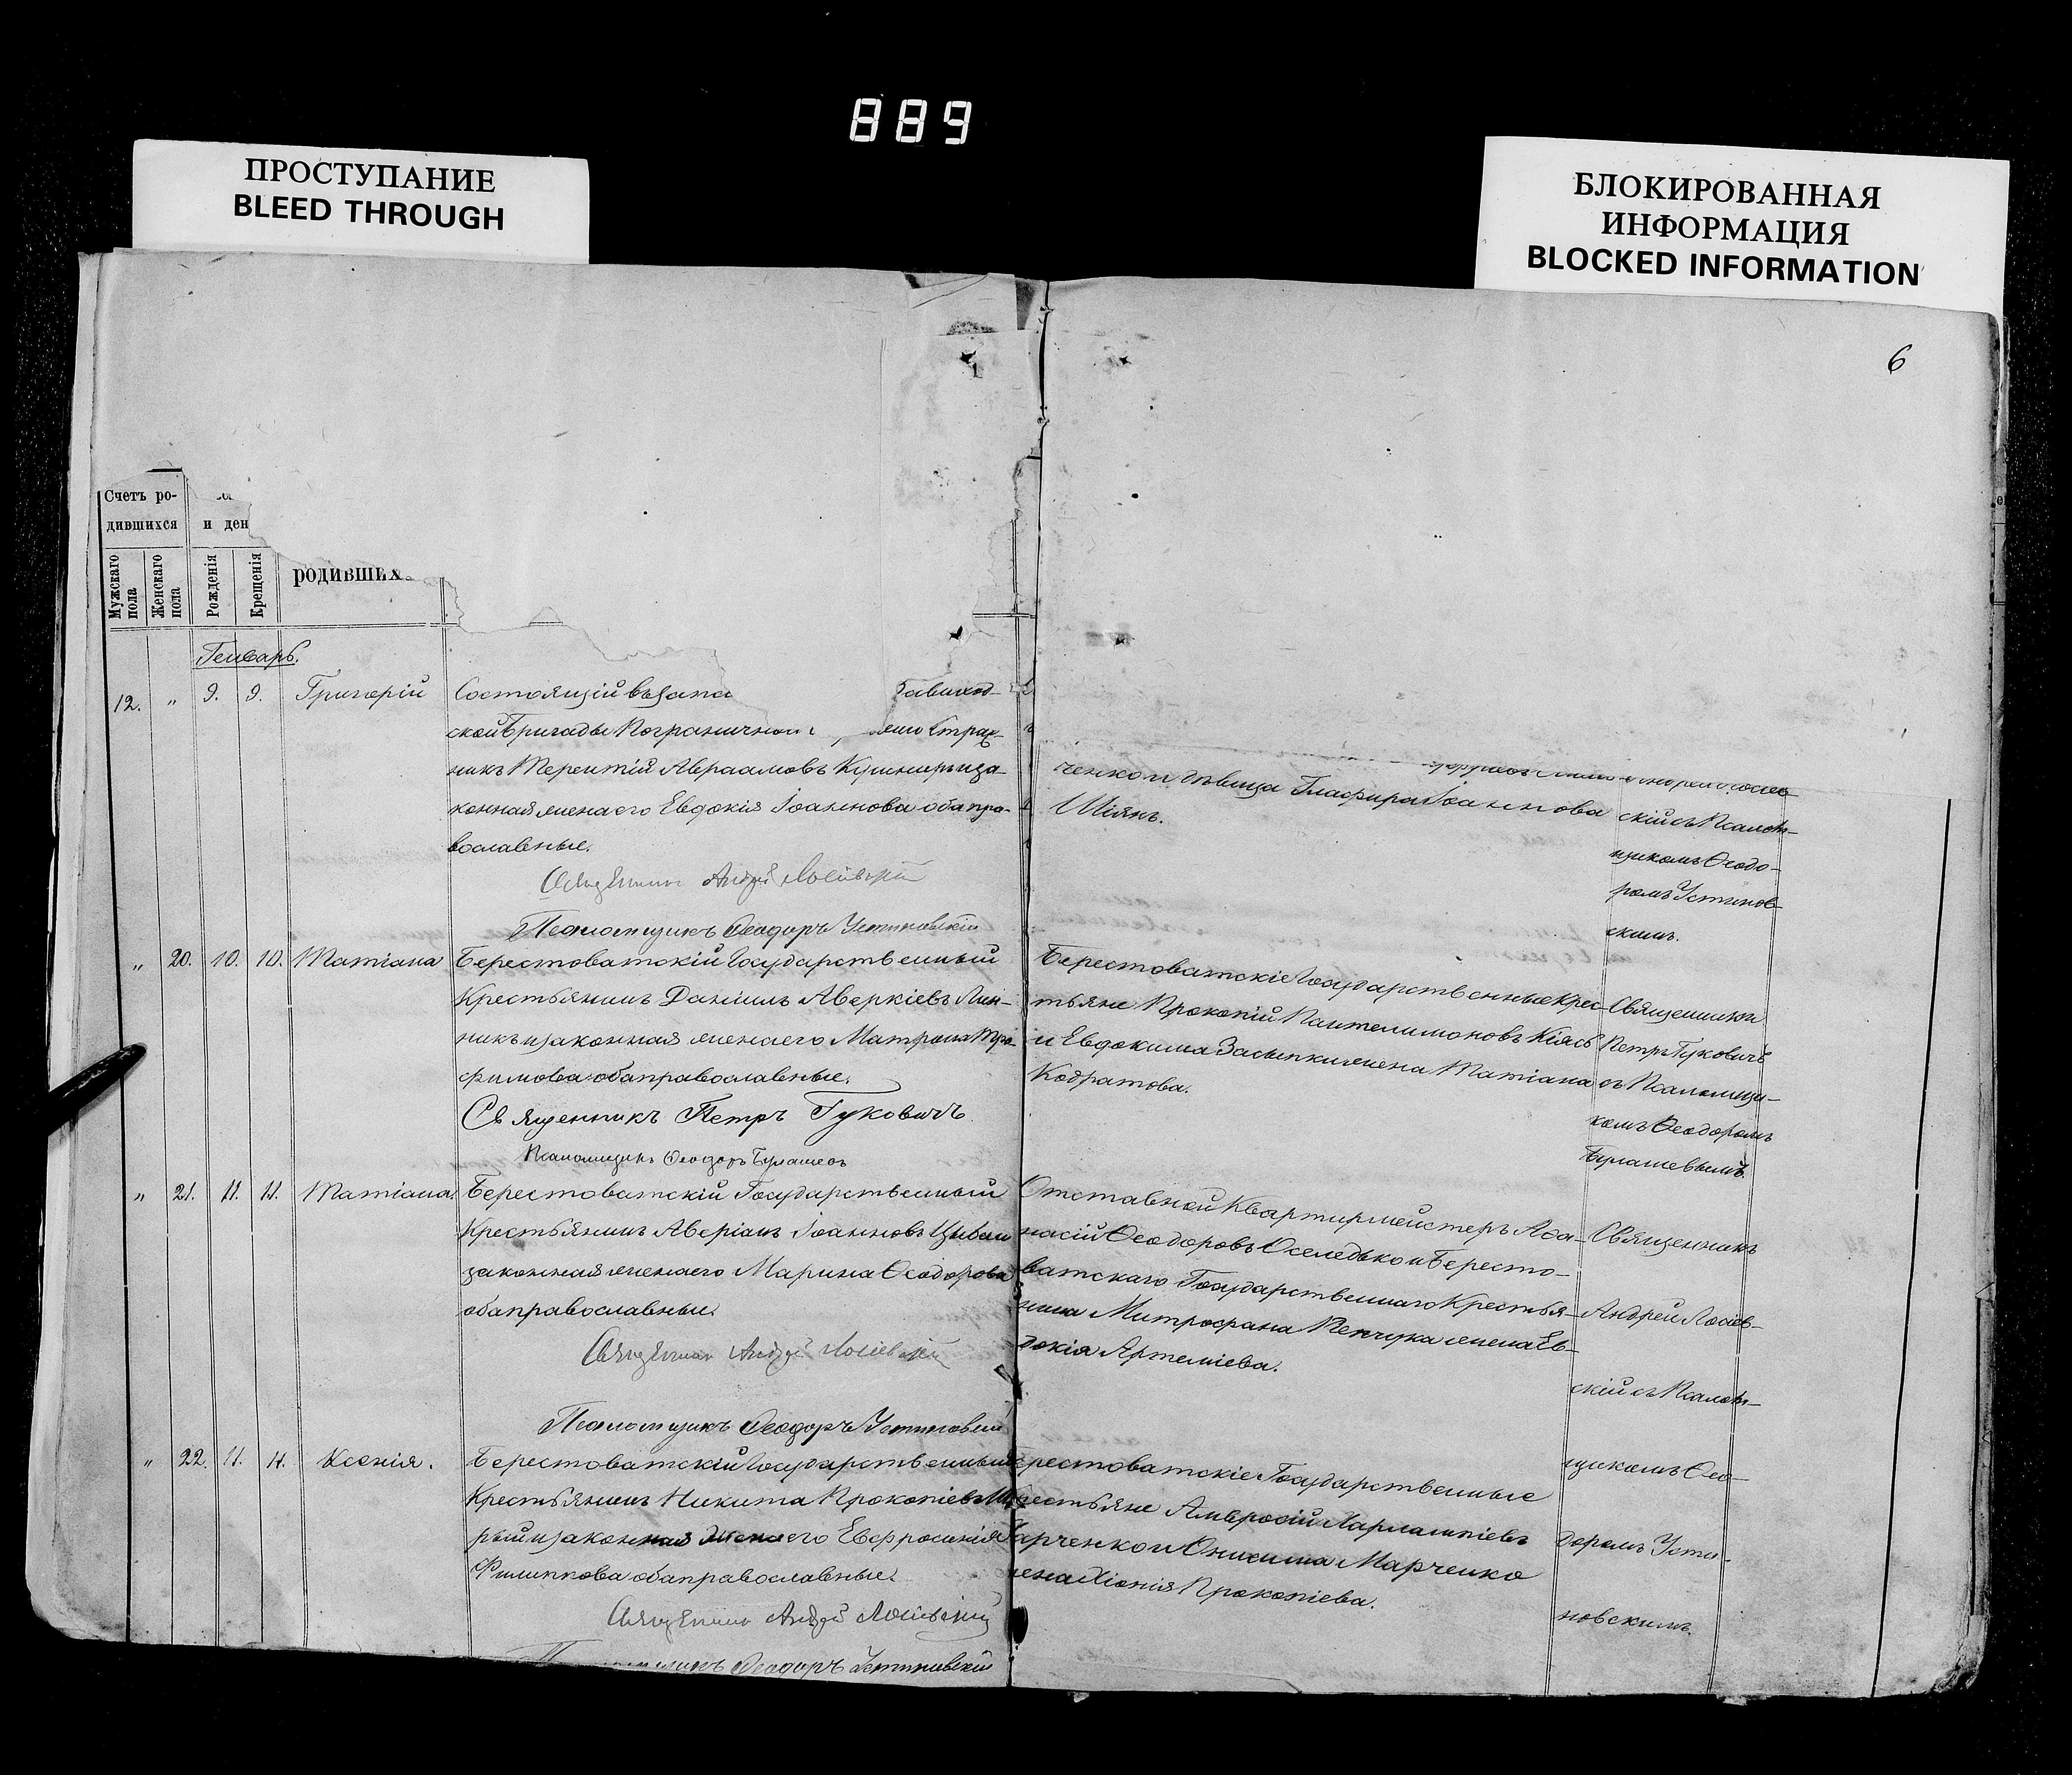 889
ПРОСТУПАНИЕ
BLEED THROUGH
БЛОКИРОВАННАЯ
ИНФОРМАЦИЯ
BLOCKED INFORMATION
6
Счетъ ро-
дившихся
и ден
Мужскаго пола
Женскаго пола
Рожденія
Крещенія
родивших
Генварь.
12. " 9. 9. Григорій
Состоящій въ запа
ской бригады Пограничной Страж-
никъ Терентій Авраамовъ и за-
конная жена его Евдокія Іоаннова оба пра-
вославные.
Священникъ Андрей Лосіевскій
Псаломщикъ Ѳеодоръ Устиновскій
ченко и дѣвица Гласира Іоаннова
Шіянъ.
скій съ Псалом-
щикомъ Ѳеодо-
ромъ Устинов-
скимъ.
" 20. 10. 10. Татіана
Берестоватскій Государственный
Крестьянинъ Даніилъ Аверкіевъ Лин-
никъ и законная жена его Матрона Тро-
фимова оба православные.
Священникъ Петръ Гуковичъ
Псаломщикъ Ѳеодоръ Булашевъ
Берестоватскіе Государственные Крес-
тьяне Прокопій Пантелимоновъ Кіясь
и Евдокима Засыпки жена Татіана
Кодратова.
Священникъ
Петръ Гуковичъ
съ Псаломщи-
комъ Ѳеодоромъ
Булашевымъ.
" 21. 11. 11. Татіана.
Берестоватскій Государственный
Крестьянинъ Аверіанъ Іоанновъ
законная жена его Марина Ѳеодорова
оба православные.
Священникъ Андрей Лосіевскій
Псаломщикъ Ѳеодоръ Устиновскій
Отставной Квартирмейстеръ Аѳа-
насій Ѳеодоровъ Оселедько и Бересто-
ватскаго Государственнаго Крестья-
нина Митрофана Пенчука жена Ев-
докія Артеміева.
Священникъ
Андрей Лосіев-
скій съ Псалом-
щикомъ Ѳео-
доромъ Усти-
новскимъ.
" 22. 11. 11. Ксенія.
Берестоватскій Государственный
Крестьянинъ Никита Прокопіевъ
рый и законная жена его Евфросинія
Филиппова оба православные.
Священникъ Андрей Лосіевскій
Псаломщикъ Ѳеодоръ Устиновскій
Берестоватскіе Государственные
Крестьяне Амвросій Харлампіевъ
Харченко и Онисима Марченко
жена Хіонія Прокопіева.